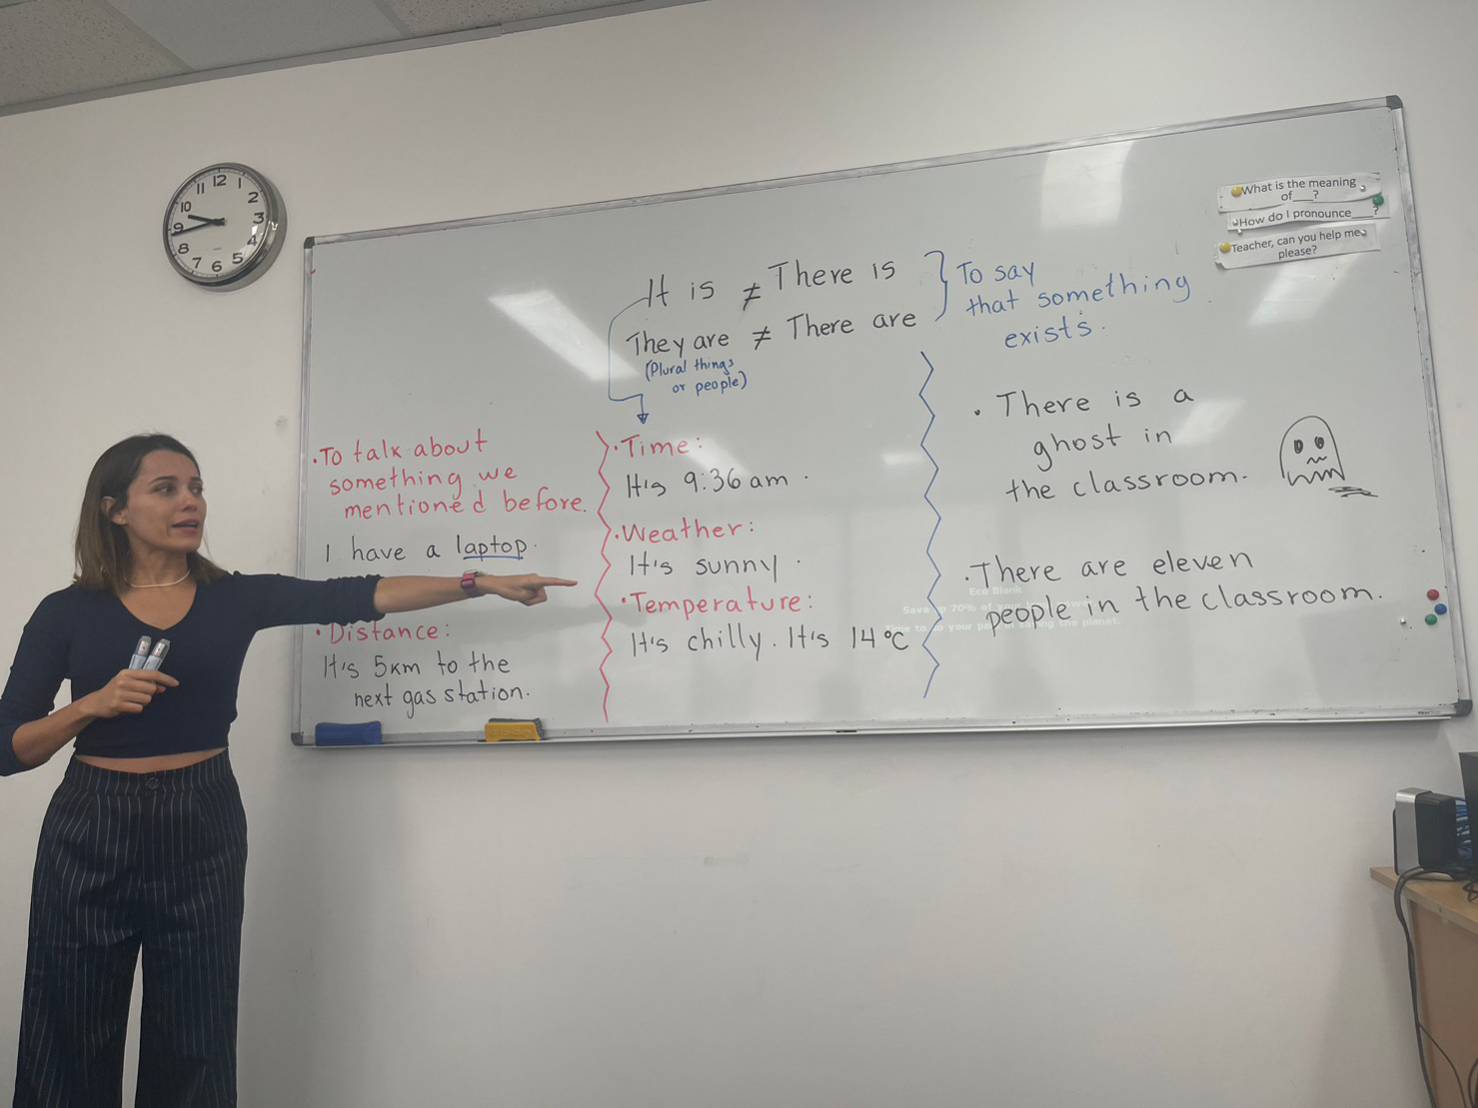 12
11 1
10 2
9 3
8 4
7 6 5
What is the meaning
of___?
How do I pronounce___?
Teacher, can you help me
please?
It is ≠ There is
They are ≠ There are
(Plural things
or people)
To say
that something
exists.
· To talk about
something we
mentioned before.
I have a laptop.
· Distance:
It's 5km to the
next gas station.
· Time:
It's 9:36 am.
· Weather:
It's sunny.
· Temperature:
It's chilly. It's 14°C
· There is a
ghost in
the classroom.
· There are eleven
people in the classroom.
Eco Blank